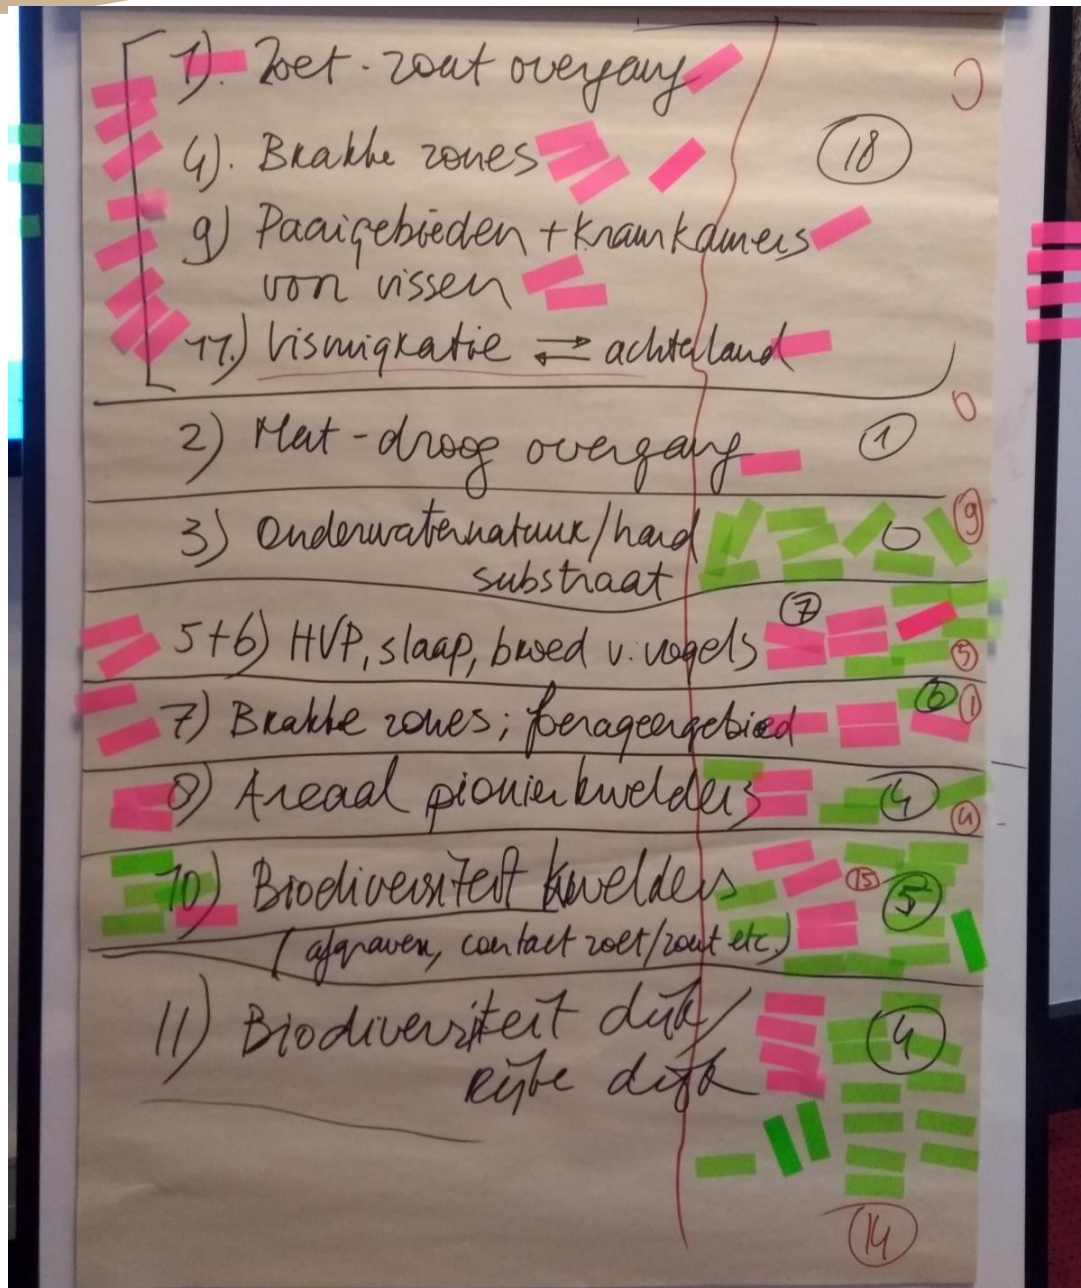 1). Zoet-zout overgang 0
4). Brakke zones 18
9) Paaigebieden + kraamkamers
van vissen
11.) Vismigratie ⇄ achterland
0
2) Nat-droog overgang 1
3) Onderwaternatuur/hard 0 9
substraat
5+6) HVP, slaap, broed v. vogels 7 5
7) Brakke zones; foerageergebied 6 1
8) Areaal pionierkwelders 4 4
10) Biodiversiteit kwelders 15 5
(afgraven, contact zoet/zout etc.)
11) Biodiversiteit dijk/ 4
Rijke dijk
14